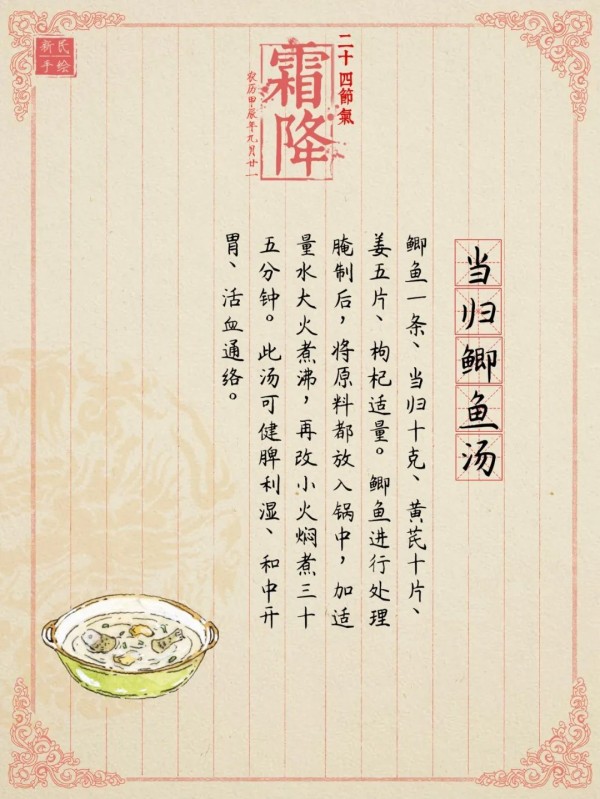 新民
手绘
二十四節氣
霜降
农历甲辰年九月廿一
当归鲫鱼汤
鲫鱼一条、当归十克、黄芪十片、
姜五片、枸杞适量。鲫鱼进行处理
腌制后，将原料都放入锅中，加适
量水大火煮沸，再改小火焖煮三十
五分钟。此汤可健脾利湿、和中开
胃、活血通络。